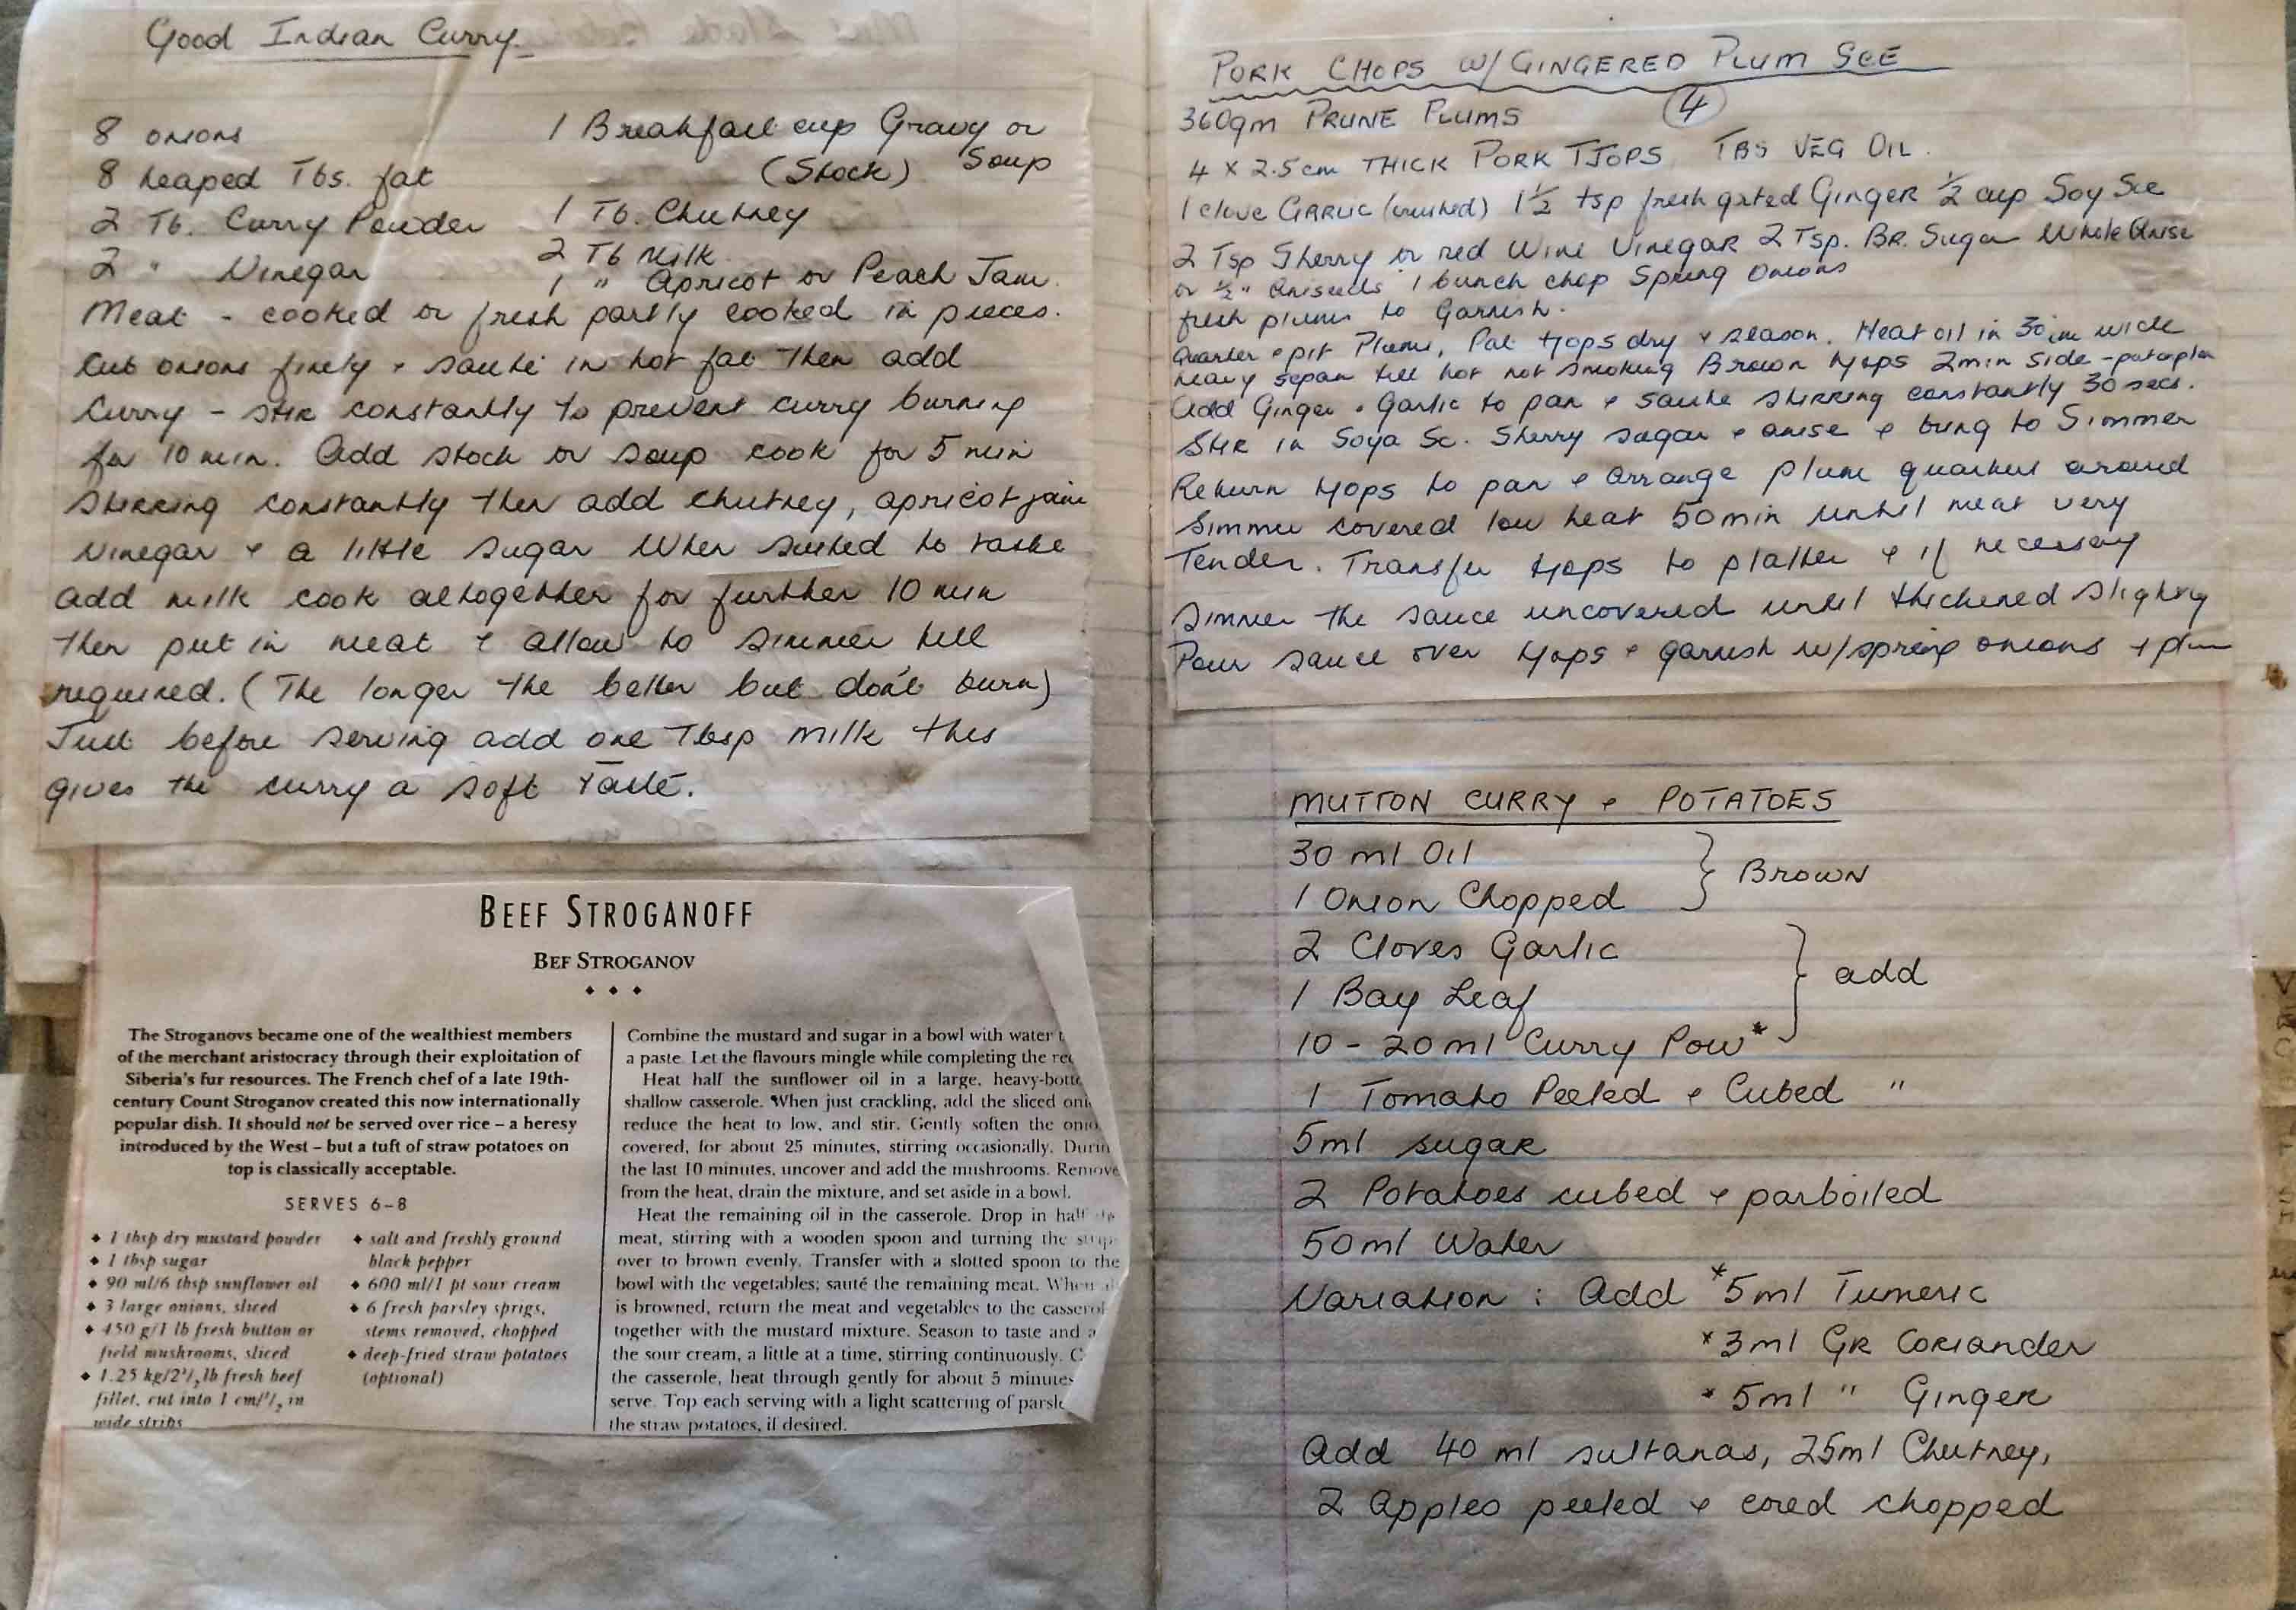 Good Indian Curry.
8 onions
8 heaped Tbs. fat
2 Tb. Curry Powder
2 " Vinegar
1 Breakfast cup Gravy or
(Stock) Soup
1 Tb. Chutney
2 Tb Milk
1 " Apricot or Peach Jam.
Meat - cooked or fresh partly cooked in pieces.
Cut onions finely & sauté in hot fat then add
Curry - stir constantly to prevent curry burning
for 10 min. Add stock or soup cook for 5 min
stirring constantly then add chutney, apricot jam
vinegar & a little sugar When suited to taste
add milk cook altogether for further 10 min
then put in meat & allow to simmer till
required. (The longer the better but don't burn)
Just before serving add one Tbsp milk this
gives the curry a soft taste.
BEEF STROGANOFF
BEF STROGANOV
The Stroganovs became one of the wealthiest members
of the merchant aristocracy through their exploitation of
Siberia's fur resources. The French chef of a late 19th-
century Count Stroganov created this now internationally
popular dish. It should not be served over rice – a heresy
introduced by the West – but a tuft of straw potatoes on
top is classically acceptable.
SERVES 6–8
◆ 1 tbsp dry mustard powder
◆ 1 tbsp sugar
◆ 90 ml/6 tbsp sunflower oil
◆ 3 large onions, sliced
◆ 450 g/1 lb fresh button or
field mushrooms, sliced
◆ 1.25 kg/2½ lb fresh beef
fillet, cut into 1 cm/½ in
wide strips
◆ salt and freshly ground
black pepper
◆ 600 ml/1 pt sour cream
◆ 6 fresh parsley sprigs,
stems removed, chopped
◆ deep-fried straw potatoes
(optional)
Combine the mustard and sugar in a bowl with water
a paste. Let the flavours mingle while completing the
Heat half the sunflower oil in a large, heavy-
shallow casserole. When just crackling, add the sliced
reduce the heat to low, and stir. Gently soften the
covered, for about 25 minutes, stirring occasionally.
the last 10 minutes, uncover and add the mushrooms. Remove
from the heat, drain the mixture, and set aside in a bowl.
Heat the remaining oil in the casserole. Drop in half
meat, stirring with a wooden spoon and turning the
over to brown evenly. Transfer with a slotted spoon to the
bowl with the vegetables; sauté the remaining meat. When
is browned, return the meat and vegetables to the
together with the mustard mixture. Season to taste and
the sour cream, a little at a time, stirring continuously.
the casserole, heat through gently for about 5
serve. Top each serving with a light scattering of
the straw potatoes, if desired.
PORK CHOPS W/ GINGERED PLUM SCE
360gm PRUNE PLUMS 4
4 x 2.5cm THICK PORK TJOPS TBS VEG OIL.
1 clove GARLIC (crushed) 1½ tsp fresh grted Ginger ½ cup Soy Sce
2 Tsp Sherry or red Wine Vinegar 2 Tsp. BR. Sugar Whole Anise
or ½" Aniseeds 1 bunch chop Spring Onions
fresh plums to Garnish.
Quarter & pit Plums, Pat tjops dry & season. Heat oil in 30cm wide
heavy till hot not smoking Brown tjops 2min side -
Add Ginger & Garlic to pan & saute stirring constantly 30 secs.
Stir in Soya Sc. Sherry sugar & anise & bring to Simmer
Return tjops to pan & arrange plum quarters around
Simmer covered low heat 50min until meat very
Tender. Transfer tjops to platter & if necessary
simmer the sauce uncovered until thickened slightly
Pour sauce over tjops & garnish w/spring onions + plum
MUTTON CURRY & POTATOES
30 ml Oil
1 Onion Chopped } Brown
2 Cloves Garlic
1 Bay Leaf } add
10 - 20ml Curry Pow*
1 Tomato Peeled & Cubed "
5ml sugar
2 Potatoes cubed & parboiled
50ml Water
Variation : Add *5ml Tumeric
*3ml GR Coriander
*5ml " Ginger
Add 40 ml sultanas, 25ml Chutney,
2 Apples peeled & cored chopped